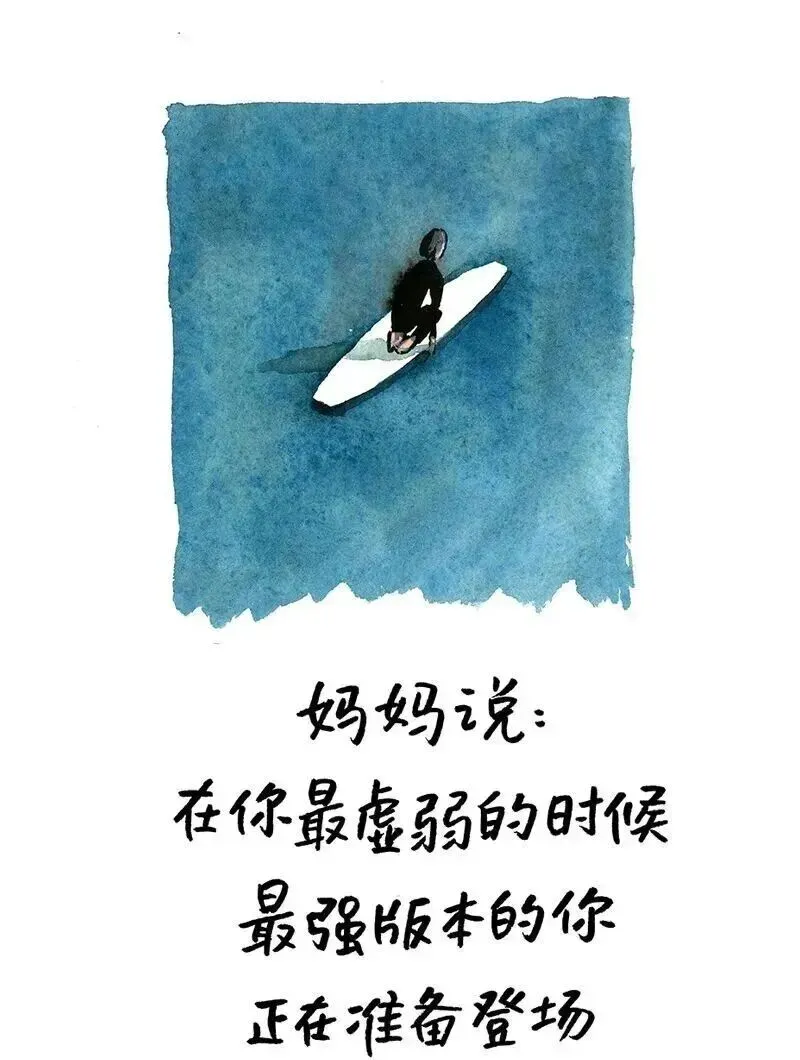 妈妈说:
在你最虚弱的时候
最强版本的你
正在准备登场